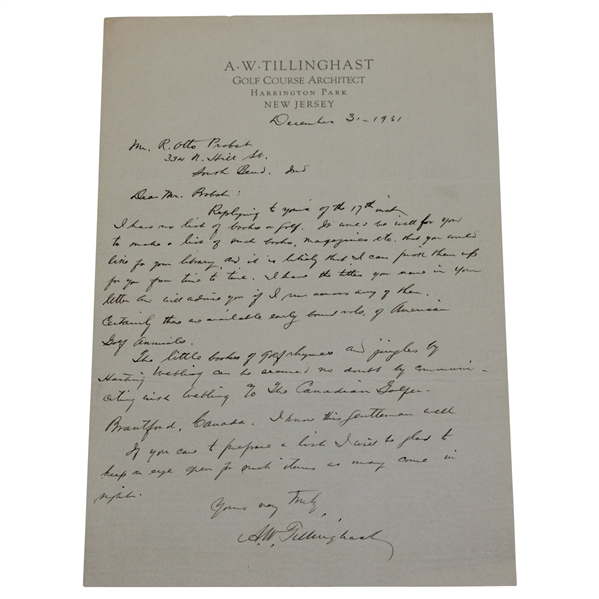 A·W·TILLINGHAST
GOLF COURSE ARCHITECT
HARRINGTON PARK
NEW JERSEY
December 3, 1931
Mr. R. Otto Probst
334 N. Hill St.
South Bend, Ind
Dear Mr. Probst:
Replying to yours of the 17th inst
I has no list of books on Golf. It would be well for you
to make a list of such books, magazines etc. that you would
like for your library, and it is likely that I can pick them up
for you from time to time. I have the titles you name in your
letter and will advise you if I run across any of them.
Certainly there are available early bound vols. of American
Golf Annuals.
The little books of Golf rhymes and jingles by
Hastings Webling can be secured no doubt by communi-
cating with Webling To The Canadian Golfer
Brantford, Canada. I know this gentleman well
If you care to prepare a list I will be glad to
keep an eye open for such items as may come in
sight.
Yours very truly,
A.W. Tillinghast